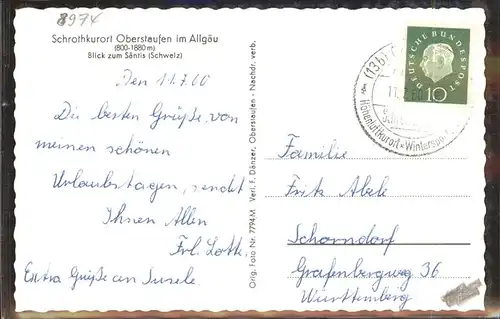 8974
Schrothkurort Oberstaufen im Allgäu
(800-1880 m)
Blick zum Säntis (Schweiz)
Den 11.7.60
Die besten Grüße von
meinen schönen
Urlaubstagen, sendet
Ihnen Allen
Frl. Lotte
Extra Grüße an Susele.
Orig. Foto Nr. 7794 M Verl. F. Dänzer, Oberstaufen - Nachdr. verb.
DEUTSCHE BUNDESPOST
10
(13b)
11.7.
Höhenluftkurort × Wintersp
Familie
Fritz Abele
Schorndorf
Grafenbergweg 36
Württemberg